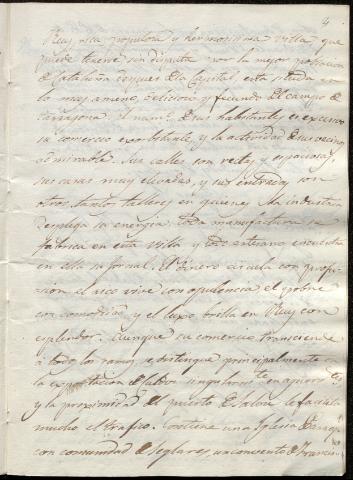 4
Reus rica populosa y hermosissima villa que
puede tenerse sin disputa por la mejor poblacion
de Cataluña despues de la Capital, está situada en
lo mas ameno, delicioso y fecundo del campo de
Tarragona. El num.o de sus habitantes es excesivo
su comercio exorbitante, y la actividad de sus vecinos
admirable. Sus calles son rectas, y espaciosas,
sus casas muy elevadas, y sus entradas son
otros tantos talleres en quienes la industria
desplega su energia. Toda manufactura se
fabrica en esta villa y todo artesano encuentra
en ella su jornal. El dinero circula con profu-
sion el rico vive con opulencia el pobre
con comodidad y el luxo brilla en Reus con
esplendor. Aunque su comercio transciende
á todo los ramos, se distingue principalmente en
la exportacion de caldos singularm.te en aguard.tes
y la proximidad del puerto de Salou le facilita
mucho el trafico. Contiene una Iglesia Parroq.l
con comunidad de seglares, un convento de Francis-